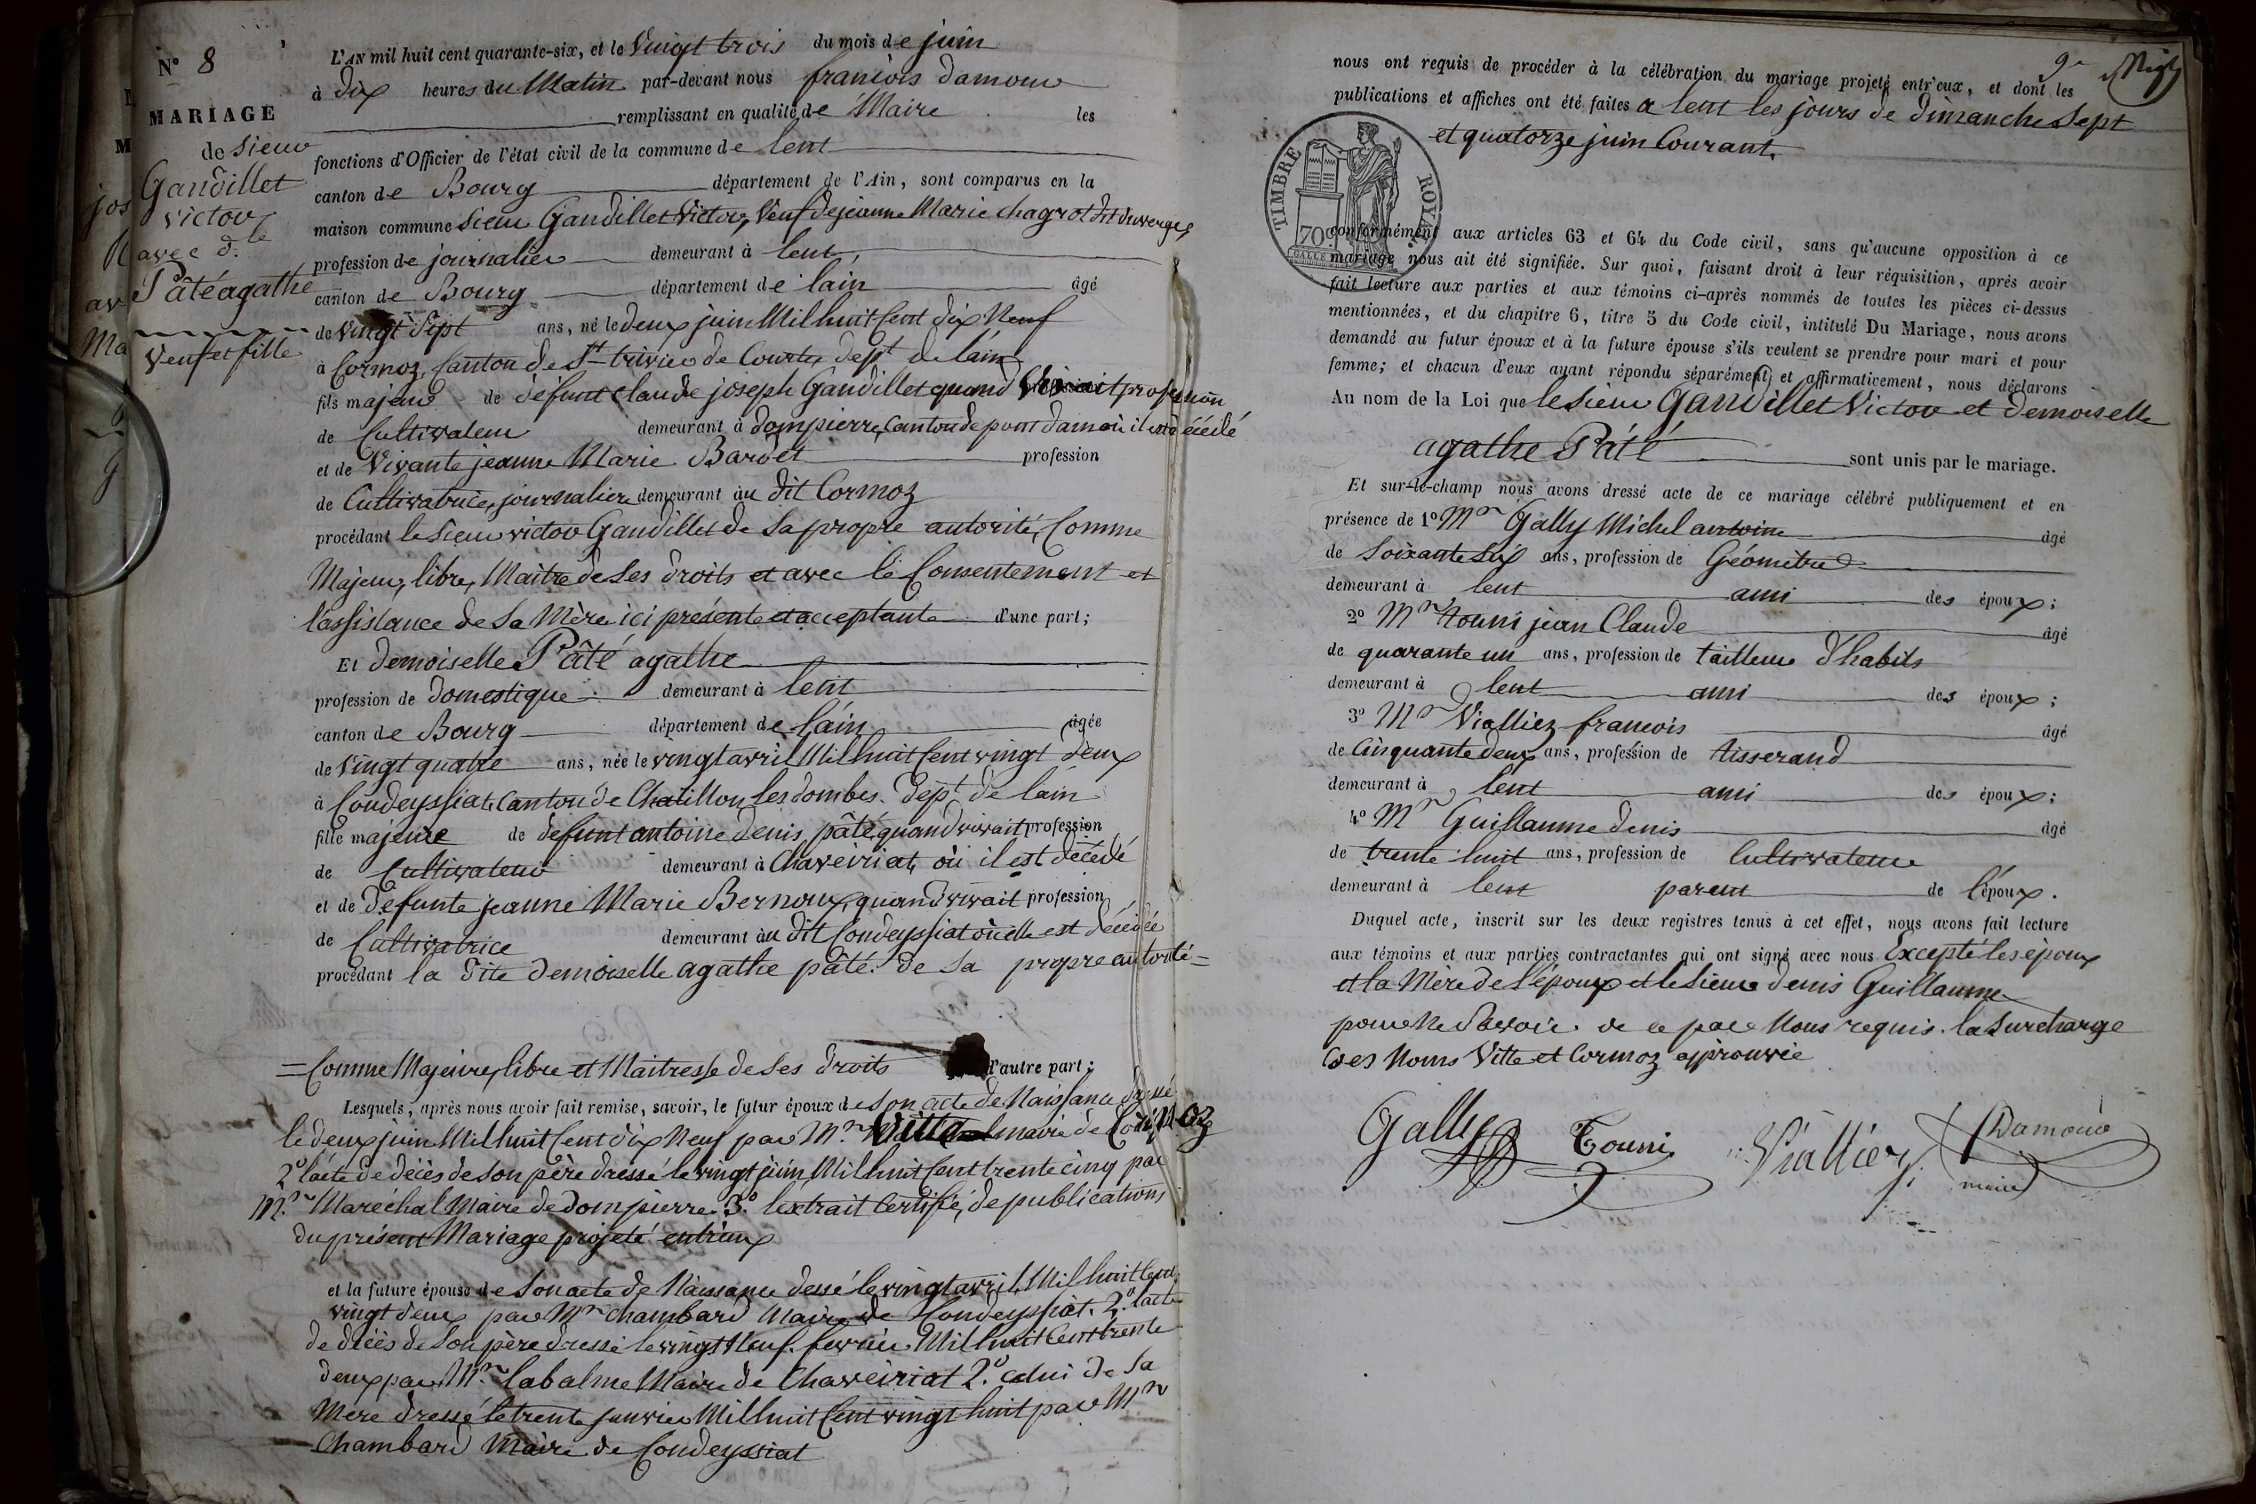 N.º 8
MARIAGE
de sieur
Gandillet
victor
avec d.lle
Pâté agathe
Veuf et fille
L'AN mil huit cent quarante-six, et le Vingt trois du mois de juin
à dix heures du Matin par-devant nous francois damour
remplissant en qualité de Maire les
fonctions d'Officier de l'état civil de la commune de lent
canton de Bourg département de l'Ain, sont comparus en la
maison commune sieur Gandillet Victor, Veuf de jeanne Marie chagrot dit duverger,
profession de journalier demeurant à lent
canton de Bourg département de l'ain âgé
de vingt Sept ans, né le deux juin Mil huit Cent dix Neuf
à Cormoz, Canton de St trivier de Courtes dept de l'ain
fils majeur de défunt Claude joseph Gandillet quand Vivait profession
de Cultivateur demeurant à dompierre, Canton de pont dain où il est décédé
et de Vivante jeanne Marie Baroet profession
de Cultivatrice, journalière demeurant au dit Cormoz
procédant le sieur victor Gandillet de sa propre autorité, Comme
Majeur, libre, Maitre de Ses droits et avec le Consentement et
l'assistance de Sa Mère ici présente et acceptante d'une part;
Et demoiselle Pâté agathe
profession de domestique demeurant à lent
canton de Bourg département de l'ain âgée
de Vingt quatre ans, née le vingt avril Mil huit Cent vingt deux
à Condeyssiat, Canton de Chatillon les dombes. dept de l'ain
fille majeure de defunt antoine denis pâté, quand vivait profession
de Cultivateur demeurant à Chaveiriat, où il est décédé
et de defunte jeanne Marie Bernoux, quand vivait profession
de Cultivatrice demeurant au dit Condeyssiat où elle est décédée
procédant la dite demoiselle agathe pâté. de sa propre autorité =
= Comme Majeure, libre et Maitresse de Ses droits d'autre part;
Lesquels, après nous avoir fait remise, savoir, le futur époux de son acte de Naissance dressé
le deux juin Mil huit Cent dix Neuf par Mr. Vitte maire de Cormoz
2º l'acte de décès de son père dressé le vingt juin Mil huit Cent trente cinq par
Mr. Maréchal Maire de dompierre. 3º. l'extrait Certifié, de publications
du présent Mariage projeté entr'eux
et la future épouse de son acte de Naissance dressé le vingt avril Mil huit Cent
vingt deux par Mr Chambard Maire de Condeyssiat. 2.º l'acte
de décès de Son père dressé le vingt Neuf fevrier Mil huit Cent trente
deux par Mr. labalme Maire de Chaveiriat 2.º celui de Sa
Mere dressé le trente janvier Mil huit Cent vingt huit par Mr
Chambard Maire de Condeyssiat
9e
nous ont requis de procéder à la célébration du mariage projeté entr'eux, et dont les
publications et affiches ont été faites à lent les jours de dimanche Sept
et quatorze juin Courant.
TIMBRE ROYAL
70c
conformément aux articles 63 et 64 du Code civil, sans qu'aucune opposition à ce
mariage nous ait été signifiée. Sur quoi, faisant droit à leur réquisition, après avoir
fait lecture aux parties et aux témoins ci-après nommés de toutes les pièces ci-dessus
mentionnées, et du chapitre 6, titre 5 du Code civil, intitulé Du Mariage, nous avons
demandé au futur époux et à la future épouse s'ils veulent se prendre pour mari et pour
femme; et chacun d'eux ayant répondu séparément et affirmativement, nous déclarons
Au nom de la Loi que le sieur Gandillet Victor et demoiselle
agathe Pâté sont unis par le mariage.
Et sur-le-champ nous avons dressé acte de ce mariage célébré publiquement et en
présence de 1º Mr Gally Michel antoine âgé
de Soixante Six ans, profession de Géomètre
demeurant à lent ami des époux;
2º Mr touni jean Claude âgé
de quarante un ans, profession de tailleur d'habits
demeurant à lent ami des époux;
3º Mr Viallier francois âgé
de Cinquante deux ans, profession de tisserand
demeurant à lent ami des époux;
4º Mr Guillaume denis âgé
de trente huit ans, profession de Cultivateur
demeurant à lent parent de l'époux.
Duquel acte, inscrit sur les deux registres tenus à cet effet, nous avons fait lecture
aux témoins et aux parties contractantes qui ont signé avec nous Excepté les époux
et la Mère de l'époux et le sieur denis Guillaume
pour Ne Savoir. de ce par Nous requis. la Surcharge
des Noms Vitte et Cormoz approuvée
Gally Touni Viallier Damour
maire